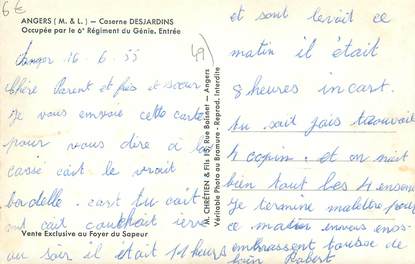 6€
ANGERS (M. & L.) — Caserne DESJARDINS
Occupée par le 6e Régiment du Génie. Entrée
49
Angers 16.6.55
Chère Parent et frès et soeur
Je vous envoie cette carte
pour vous dire à la
casse cait le vrait
bordelle. cart tu cait
ont cait couchait ière
au soir il était 11 heurs
Vente Exclusive au Foyer du Sapeur
M. CHRÉTIEN & Fils 15, Rue Boisnet — Angers
Véritable Photo au Bromure - Reprod. Interdite
et sont levait ce
matin il était
8 heures incart.
tu sait jais trouvait
4 copin. et on nuit
bien tout les 4 ensem
Je termine malettre pour
ce matin envous
embrassent toutuse de
Robert